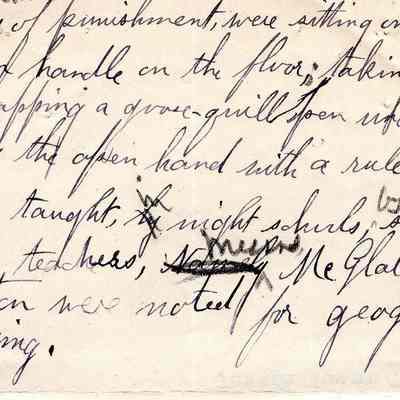 of punishment, were sitting on
handle on the floor; takin
apping a goose-quill pen
the open hand with a rule
taught, in night schools,
teachers, Messrs Mc Glad
were noted for geog
ing.